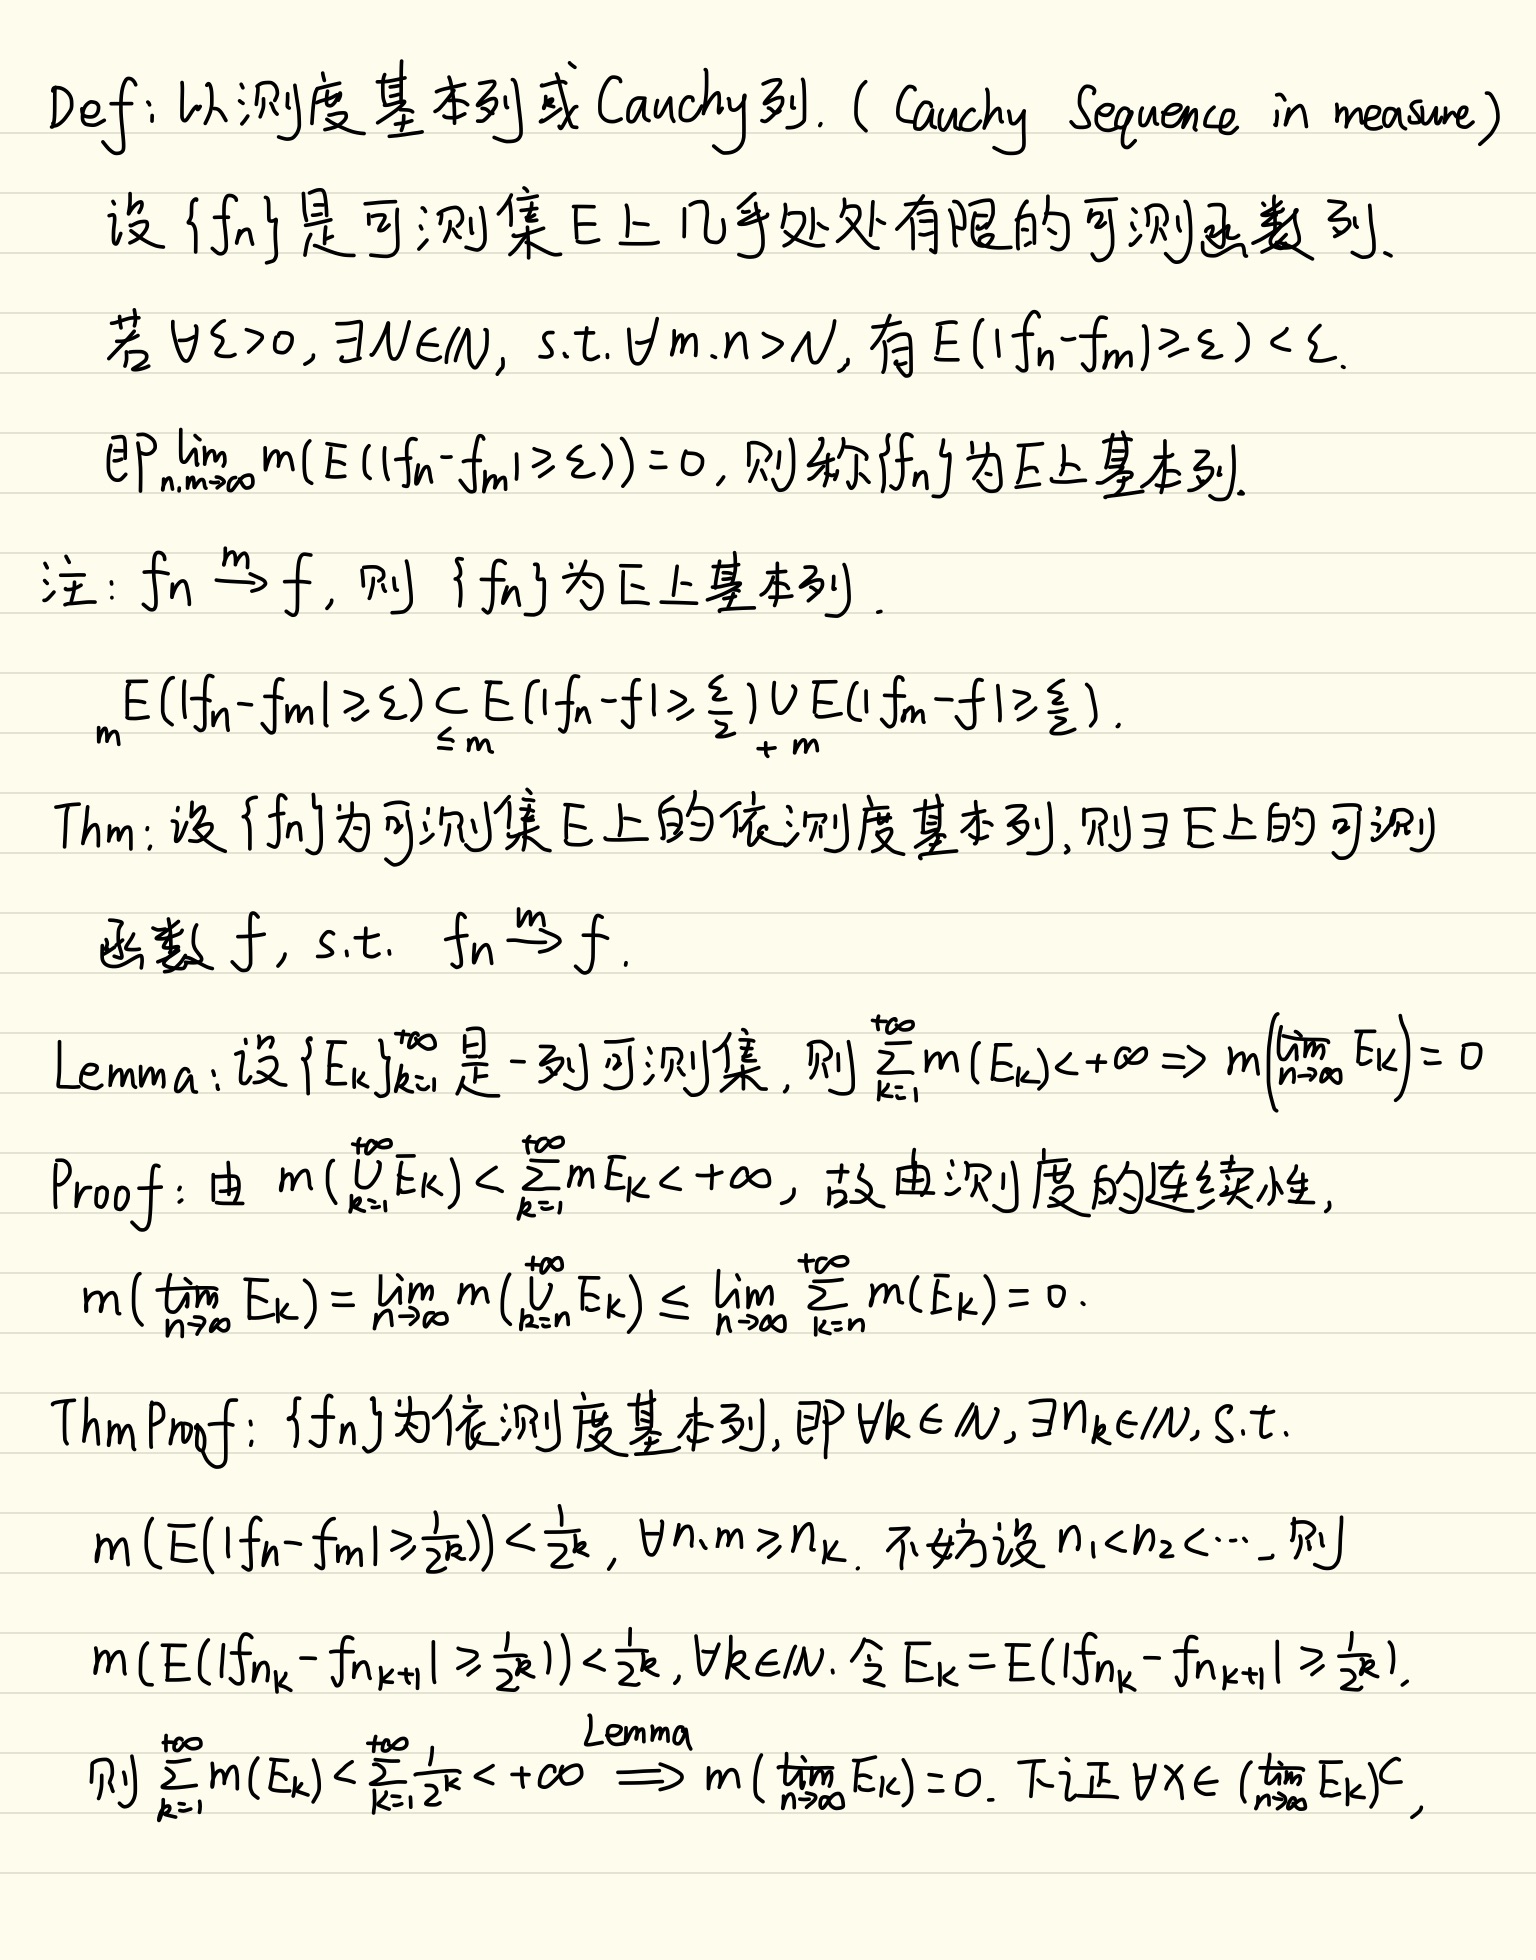 Def: 以测度基本列或Cauchy列. ( Cauchy Sequence in measure)
设 {fₙ} 是可测集E上几乎处处有限的可测函数列.
若 ∀ε>0, ∃N∈ℕ, s.t. ∀m.n>N, 有 E(|fₙ-fₘ|≥ε)<ε.
即 lim_{n.m→∞} m(E(|fₙ-fₘ|≥ε))=0, 则称{fₙ}为E上基本列.
注: fₙ →^m f, 则 {fₙ}为E上基本列.
m E(|fₙ-fₘ|≥ε) ⊂ E(|fₙ-f|≥ε/2) ∪ E(|fₘ-f|≥ε/2).
≤ m + m
Thm: 设{fₙ}为可测集E上的依测度基本列, 则∃E上的可测
函数 f, s.t. fₙ →^m f.
Lemma: 设{E_k}_{k=1}^{+∞} 是一列可测集, 则 ∑_{k=1}^{+∞} m(E_k)<+∞ ⇒ m(\overline{lim}_{n→∞} E_k) = 0
Proof: 由 m(∪_{k=1}^{+∞} E_k) < ∑_{k=1}^{+∞} mE_k < +∞, 故由测度的连续性,
m(\overline{lim}_{n→∞} E_k) = lim_{n→∞} m(∪_{k=n}^{+∞} E_k) ≤ lim_{n→∞} ∑_{k=n}^{+∞} m(E_k) = 0.
Thm Proof: {fₙ}为依测度基本列, 即 ∀k∈ℕ, ∃n_k∈ℕ, s.t.
m(E(|fₙ-fₘ|≥1/2^k)) < 1/2^k, ∀n.m≥n_k. 不妨设 n₁<n₂<…. 则
m(E(|f_{n_k}-f_{n_{k+1}}|≥1/2^k)) < 1/2^k, ∀k∈ℕ. 令 E_k = E(|f_{n_k}-f_{n_{k+1}}|≥1/2^k).
则 ∑_{k=1}^{+∞} m(E_k) < ∑_{k=1}^{+∞} 1/2^k < +∞ ⟹^{Lemma} m(\overline{lim}_{n→∞} E_k)=0. 下证 ∀x∈(\overline{lim}_{n→∞} E_k)^C,